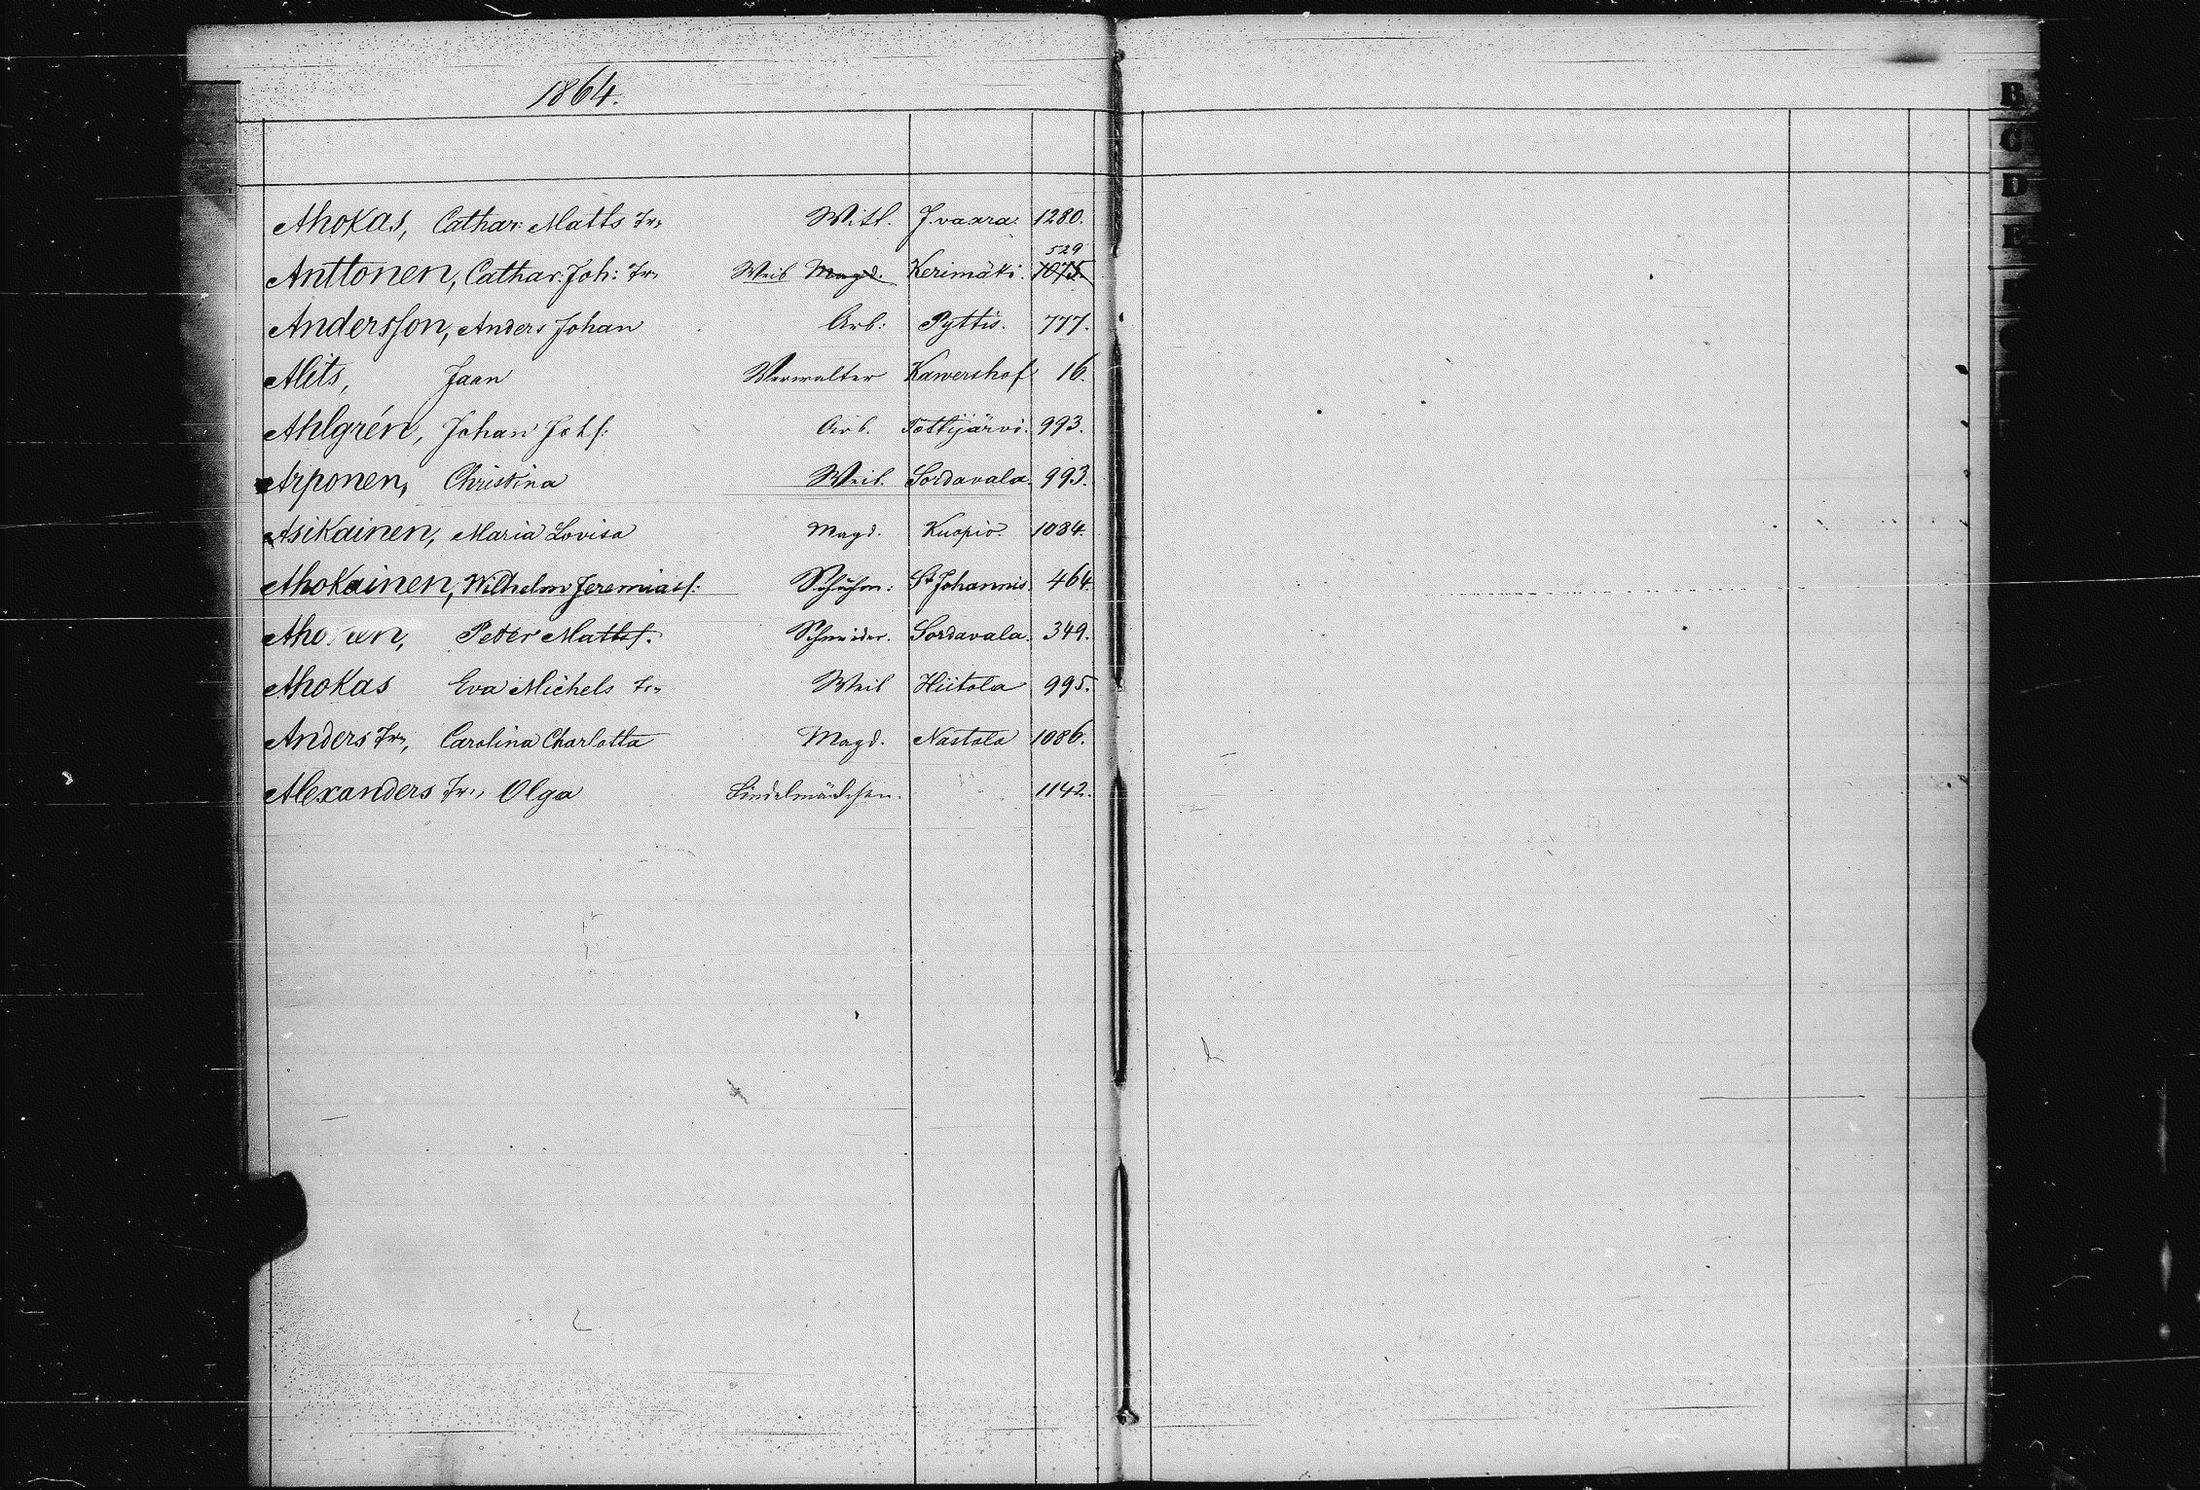 1864.
Ahokas, Cathar: Matts Tr, Witt. J.vaara. 1280.
529
Anttonen, Cathar: Joh: Tr, Weib Magd. Kerimäki. 1075
Andersson, Anders Johan Arb: Pyttis. 777.
Alits, Jaan Verwalter Kawershof 16.
Ahlgrén, Johan Johs: Arb. Tottijärvi. 993.
Arponen, Christina Weib. Sordavala. 993.
Asikainen, Maria Lovisa Magd. Kuopio. 1084.
Ahokainen, Wilhelm Jeremiass: Schuhm: St Johannis. 464
Ahonen, Peter Matts. Schneider. Sordavala. 349.
Ahokas Eva Michels Tr, Weib Hiitola 995.
Anders Tr, Carolina Charlotta Magd. Nastola 1086.
Alexanders Tr., Olga Findelmädchen. 1142.
B
C
D